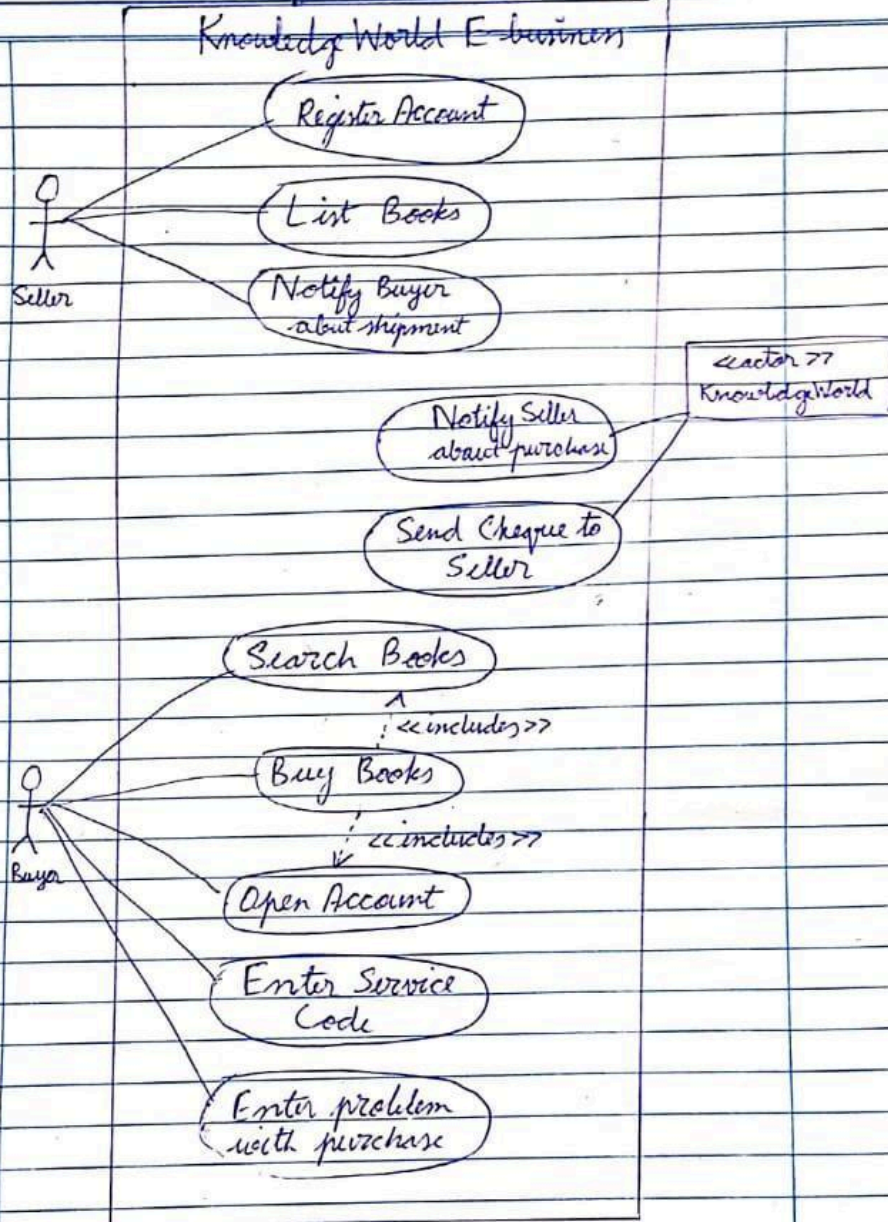 KnowledgeWorld E-business
Register Account
List Books
Seller
Notify Buyer
about shipment
<<actor>>
KnowledgeWorld
Notify Seller
about purchase
Send Cheque to
Seller
Search Books
<<includes>>
Buy Books
<<includes>>
Buyer
Open Account
Enter Service
Code
Enter problem
with purchase